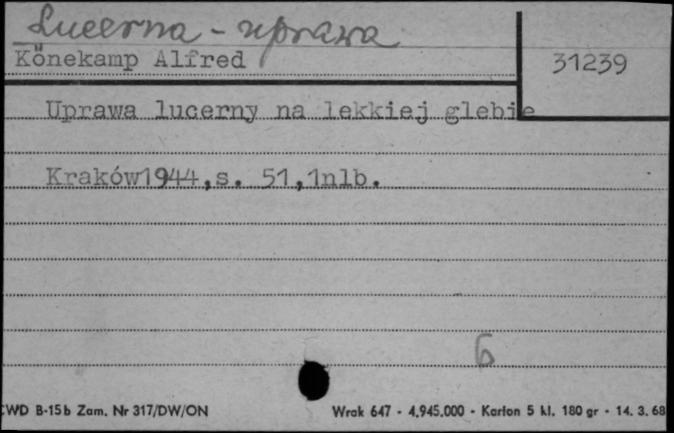 Lucerna - uprawa
Könekamp Alfred
31239
Uprawa lucerny na lekkiej glebie
Kraków1944,s. 51,1nlb.
6
CWD B-15b Zam. Nr 317/DW/ON
Wrak 647 - 4.945.000 - Karton 5 kl. 180 gr - 14. 3. 68